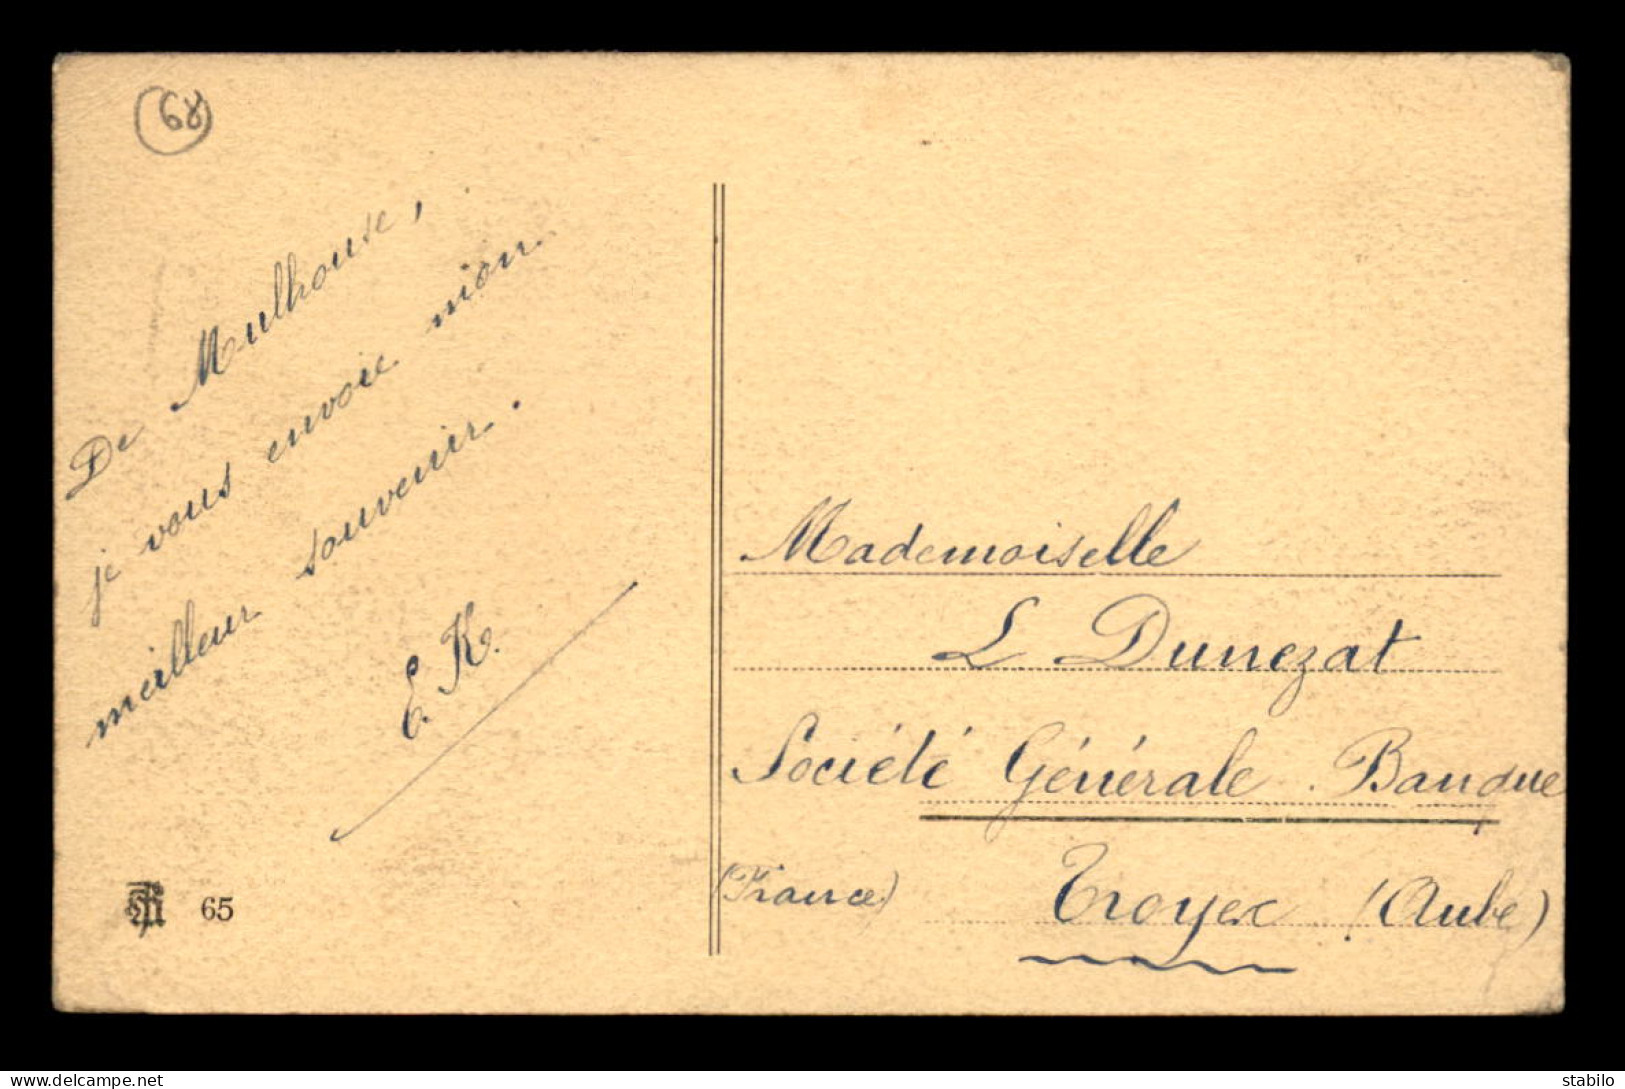 68
De Mulhouse,
je vous envoie mon
meilleur souvenir.
E. K.
65
Mademoiselle
L Dunezat
Société Générale. Banque
(France) Troyes (Aube)
delcampe.net
stabilo